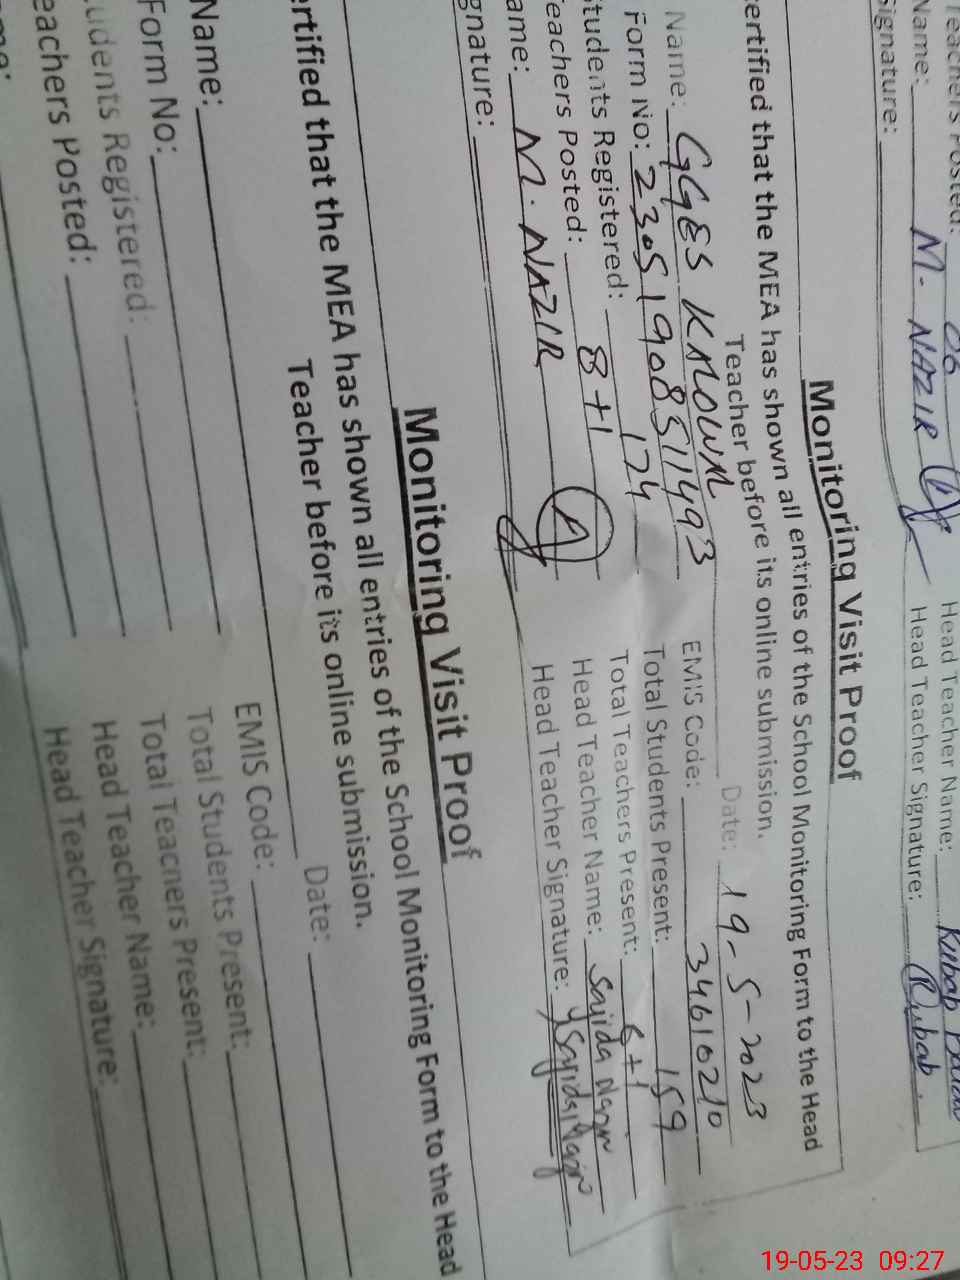 Teachers Posted: 06 Head Teacher Name: Rubab
Name: M. NAZIR Head Teacher Signature: Rubab.
Signature:
Monitoring Visit Proof
ertified that the MEA has shown all entries of the School Monitoring Form to the Head
Teacher before its online submission.
Date: 19-5-2023
Name: GGES
Form No: 2305190851493 EMIS Code: 34610210
Students Registered: 174 Total Students Present: 159
eachers Posted: 8+1 Total Teachers Present: 6+1
ame: M. NAZIR Head Teacher Name: Sajida
gnature: Head Teacher Signature:
Monitoring Visit Proof
ertified that the MEA has shown all entries of the School Monitoring Form to the Head
Teacher before its online submission.
Date:
Name:
Form No: EMIS Code:
udents Registered: Total Students Present:
eachers Posted: Total Teachers Present:
me: Head Teacher Name:
Head Teacher Signature:
19-05-23 09:27